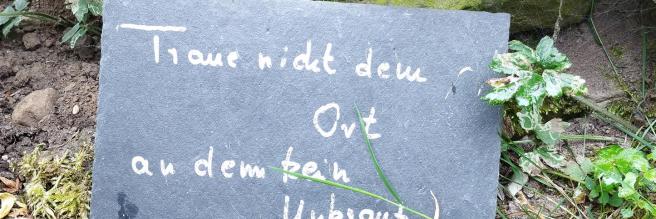 Traue nicht dem
Ort
an dem kein
Unkraut